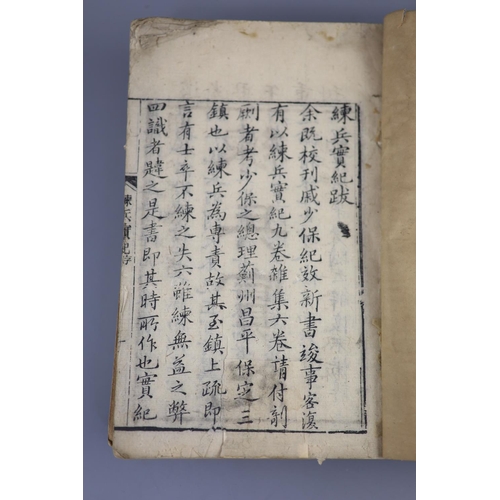 練兵實紀跋
余既校刊戚少保紀效新書竣事客復
有以練兵實紀九卷雜集六卷請付剞
劂者考少保之總理薊州昌平保定三
鎮也以練兵為專責故其至鎮上疏即
言有士卒不練之失六雖練無益之弊
四識者韙之是書即其時所作也實紀
練兵實紀序